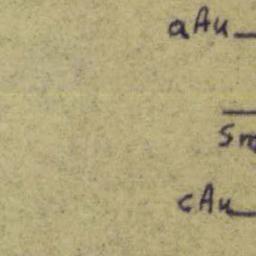 aAu
Sm
cAu